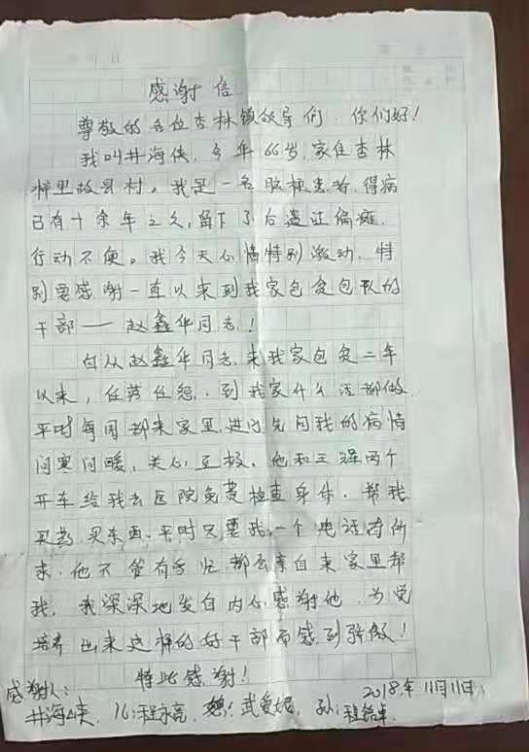 感谢信
尊敬的各位杏林镇领导们，你们好！
我叫井海侠，今年66岁，家住杏林
镇里故县村。我是一名脑梗患者，得病
已有十余年之久，留下了后遗症偏瘫，
行动不便。我今天心情特别激动，特
别要感谢一直以来到我家包贫包扶的
干部——赵鑫华同志！
自从赵鑫华同志来我家包贫二年
以来，任劳任怨，到我家什么活都做，
平时每周都来家里，进门先问我的病情
问寒问暖，关心至极，他和王辉两个
开车给我去医院免费检查身体，帮我
买药，买东西，平时只要我一个电话有所
求，他不管有多忙都会亲自来家里帮
我，我深深地发自内心感谢他，为党
培养出来这样的好干部而感到骄傲！
特此感谢！
感谢人： 2018年11月11日
井海峡，儿：程永亮，媳：武爱妮，孙：程